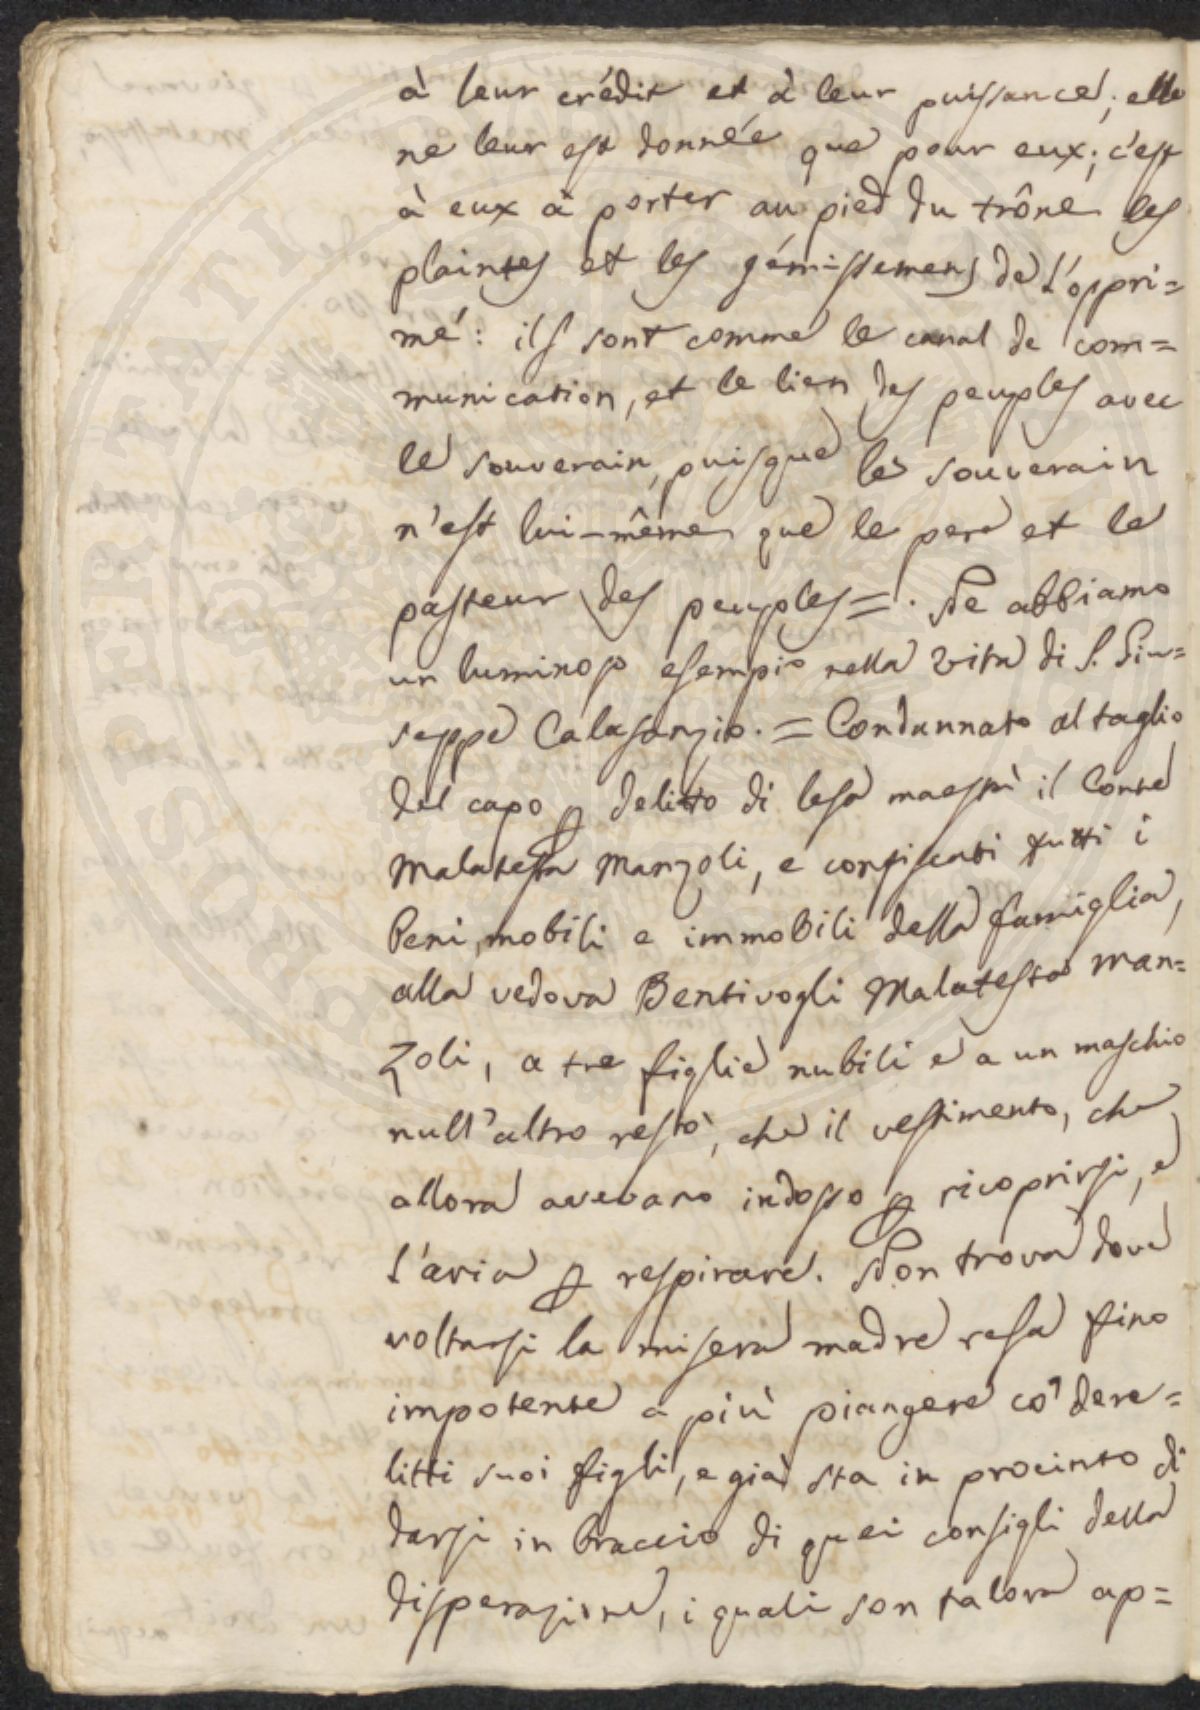 à leur crédit et à leur puissance; elle
ne leur est donnée que pour eux; c'est
à eux à porter au pied du trône les
plaintes et les gémissemens de l'oppri=
mé: ils sont comme le canal de com=
munication, et le lien des peuples avec
le souverain, puisque le souverain
n'est lui-même que le pere et le
pasteur des peuples =. Ne abbiamo
un luminoso esempio nella vita di S. Giu=
seppe Calasanzio. = Condannato al taglio
del capo per delitto di lesa maestà il Conte
Malatesta Manzoli, e confiscati tutti i
beni, mobili e immobili della famiglia,
alla vedova Bentivogli Malatesta Man=
zoli, a tre figlie nubili e a un maschio
null'altro restò, che il vestimento, che
allora avevano indosso per ricoprirsi, e
l'aria per respirare. Non trova dove
voltarsi la misera madre resa fino
impotente a più piangere co' dere=
litti suoi figli, e già sta in procinto di
darsi in braccio di quei consigli della
disperazione, i quali son talora ap=
PROSPERITATI